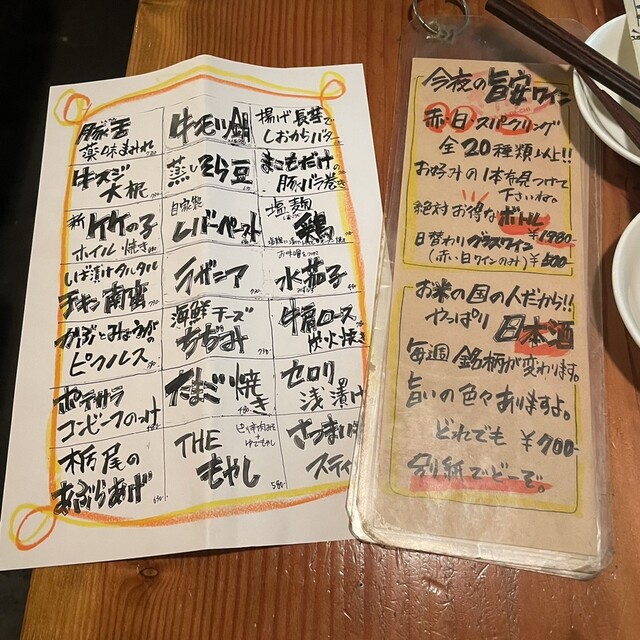 豚舌
薬味まみれ
牛モツ鍋
揚げ長芋で
しおからバター
牛スジ
大根
蒸しそら豆
まこもだけの
豚バラ巻き
新竹の子
ホイル焼き
自家製
レバーペースト
塩麹
鶏
しば漬けタルタル
チキン南蛮
ラザニア
水茄子
かぶとみょうがの
ピクルス
海鮮チーズ
ちぢみ
牛肩ロース
炭火焼き
ポテサラ
コンビーフのっけ
たまご焼き
セロリ
浅漬け
栃尾の
あぶらあげ
THE
もやし
580-
さつまいも
スティ
今夜の旨安ワイン
赤・白・スパークリング
全20種類以上!!
お好みの1本を見つけて
下さいね。
絶対お得なボトル
¥1980-
日替わりグラスワイン
(赤い白ワインのみ) ¥500-
お米の国の人だから!!
やっぱり日本酒
毎週銘柄が変わります。
旨いの色々ありますよ。
どれでも ¥700-
別紙でどーぞ。